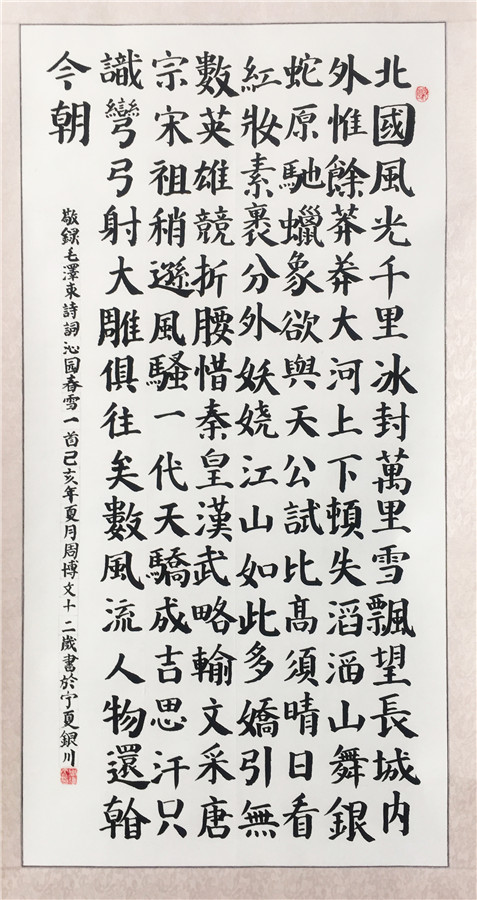 北國風光千里冰封萬里雪飄望長城内
外惟餘莽莽大河上下頓失滔滔山舞銀
蛇原馳蠟象欲與天公試比髙須晴日看
紅妝素裹分外妖娆江山如此多嬌引無
數英雄競折腰惜秦皇漢武略輸文采唐
宗宋祖稍遜風騷一代天驕成吉思汗只
識彎弓射大雕俱往矣數風流人物還看
今朝
敬録毛澤東詩詞沁园春雪一首己亥年夏月周博文十二歲書於宁夏銀川